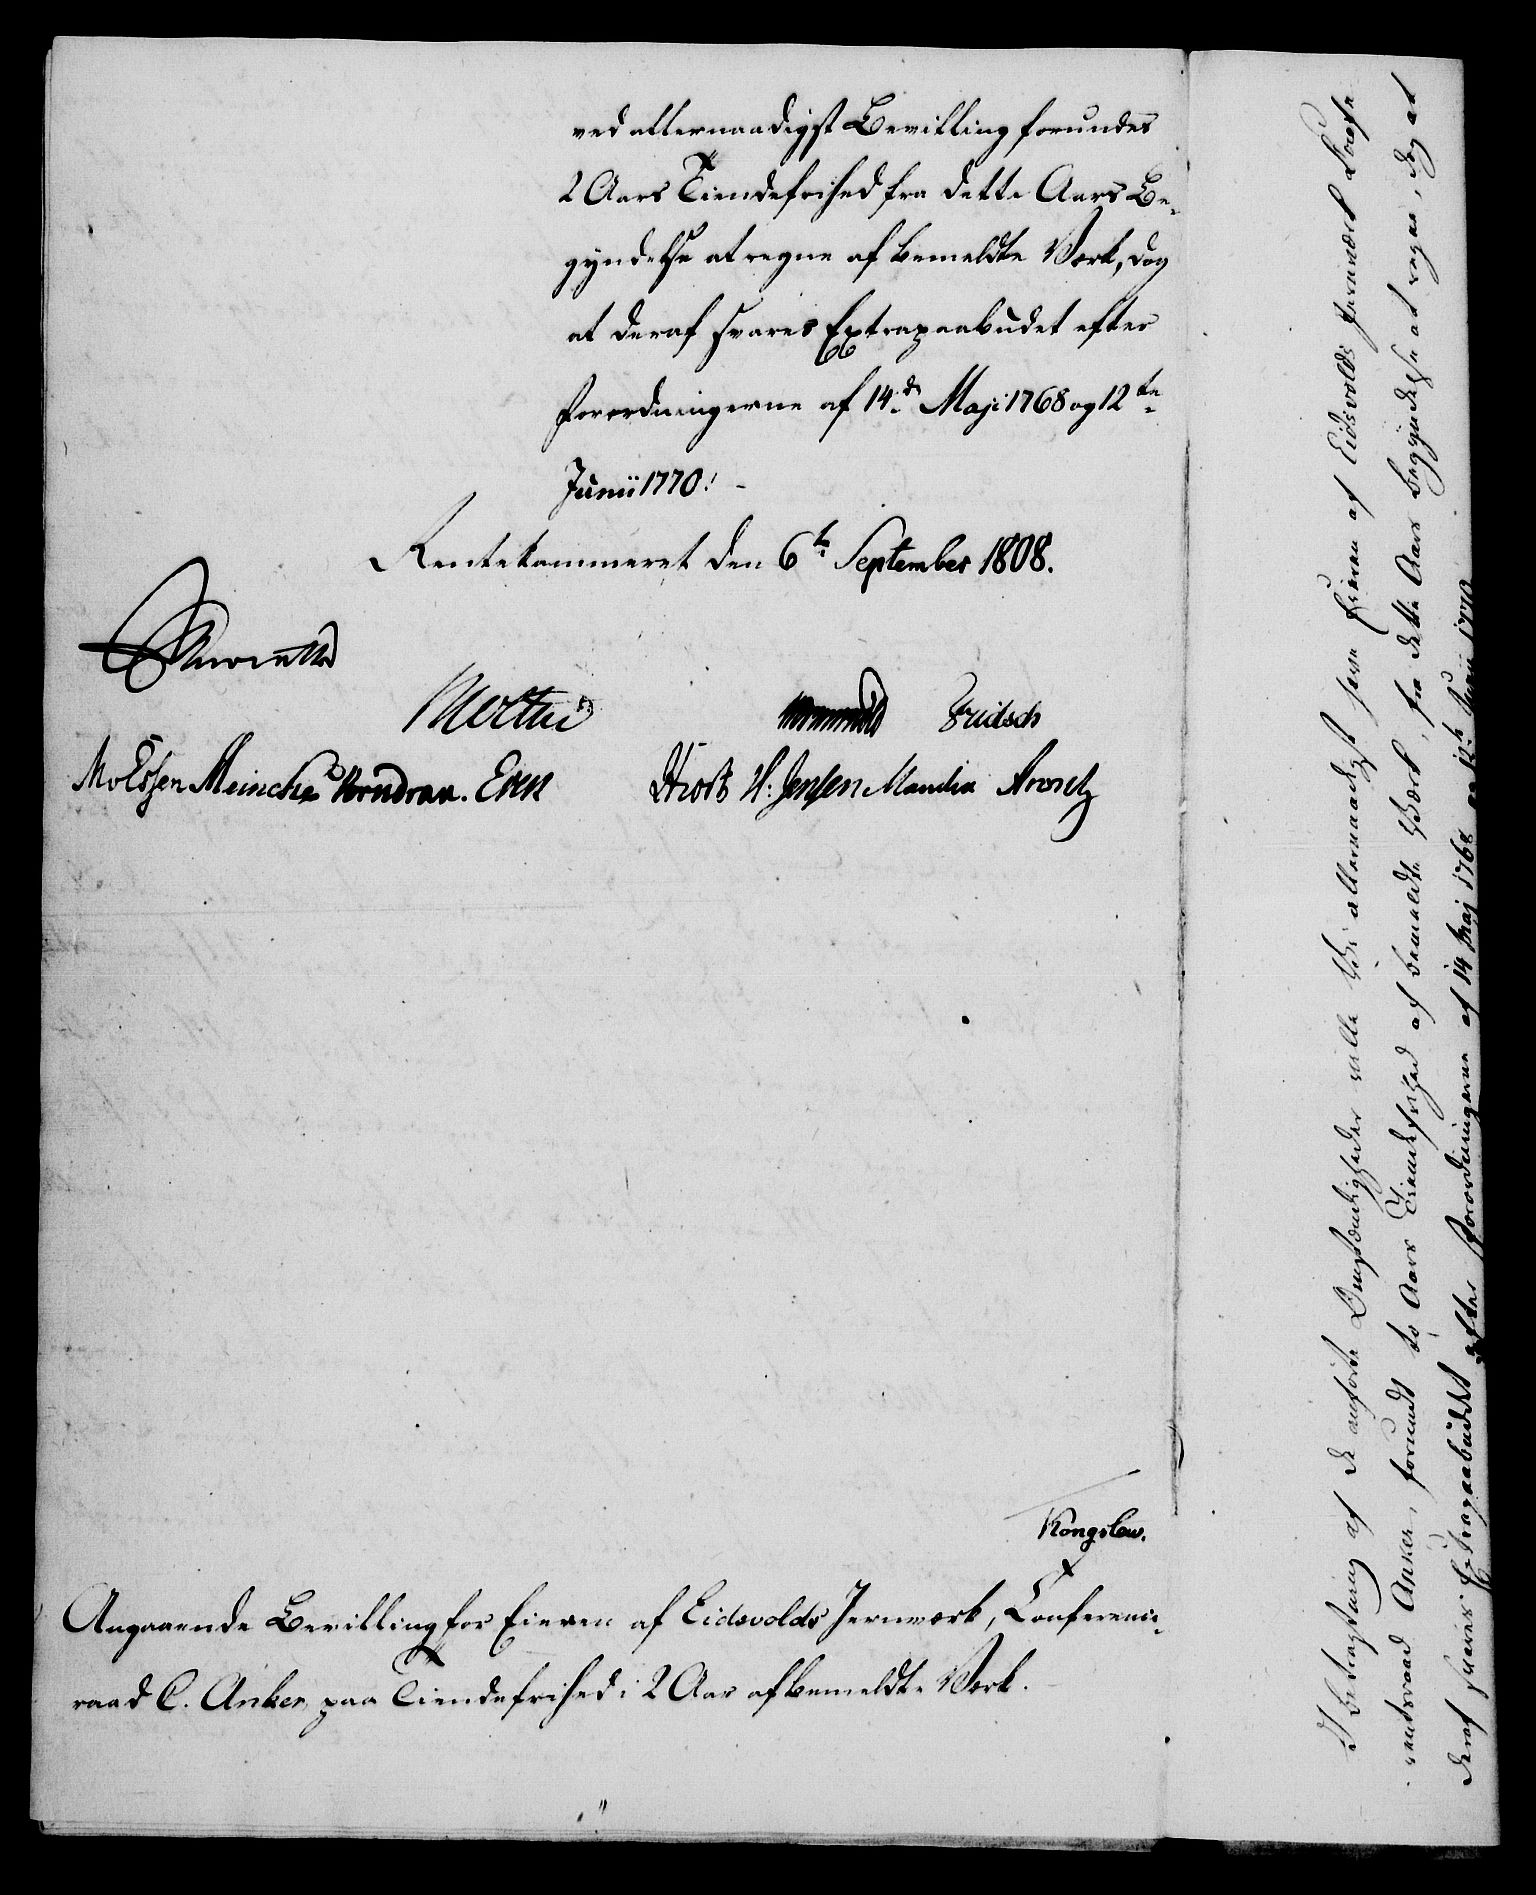 ved allernaadigst Bevilling forundes
2 Aars Tiendefrihed fra dette Aars Be-
gyndelse at regne af bemeldte Værk, dog
at deraf svares Extrapaabudet efter
Forordningerne af 14de Maji 1768 og 12te
Junii 1770.
Rentekammeret den 6te September 1808.
Reventlow
Moltke Fridsch
M Essen Meincke Wendrau. Even H: Jensen Mandix Arentz
Kongslew.
Angaaende Bevilling for Eieren af Eidsvolds Jernværk, Conferenci-
raad C. Anker, paa Tiendefrihed i 2 Aar af bemeldte Værk.
I Betragtning af de anførte Omstændigheder ville Vi allernaadigst have Eieren af Eidsvolds Jernværk Confe-
rentsraad Anker, forundt to Aars Tiendefrihed af bemeldte Værk, fra dette Aars Begyndelse at regne, dog at
deraf svares Extrapaabudet efter Forordningerne af 14 Maj 1768 og 12te Junii 1770